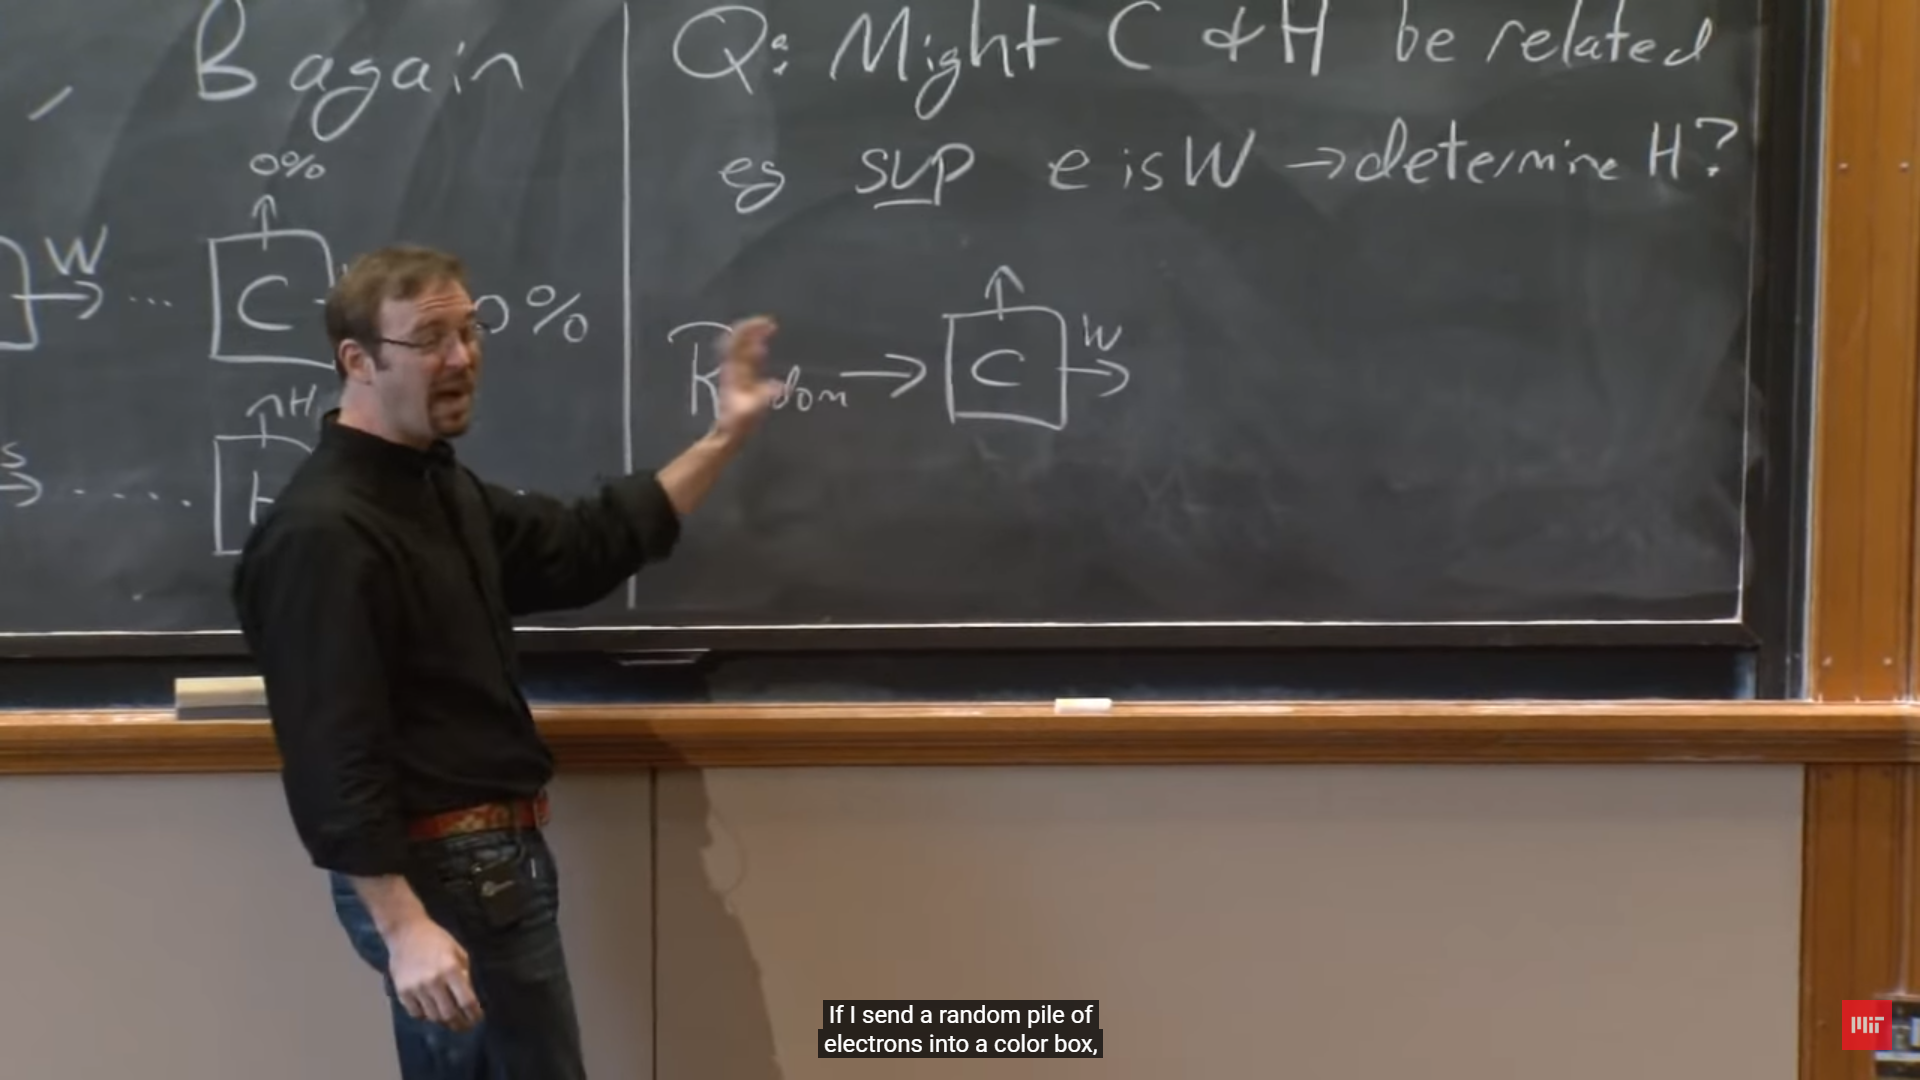 B again
0%
W
...
C
0%
H
s
.....
Q: Might C & H be related
eg sup e is W → determine H?
→ C
W
If I send a random pile of
electrons into a color box,
MIT